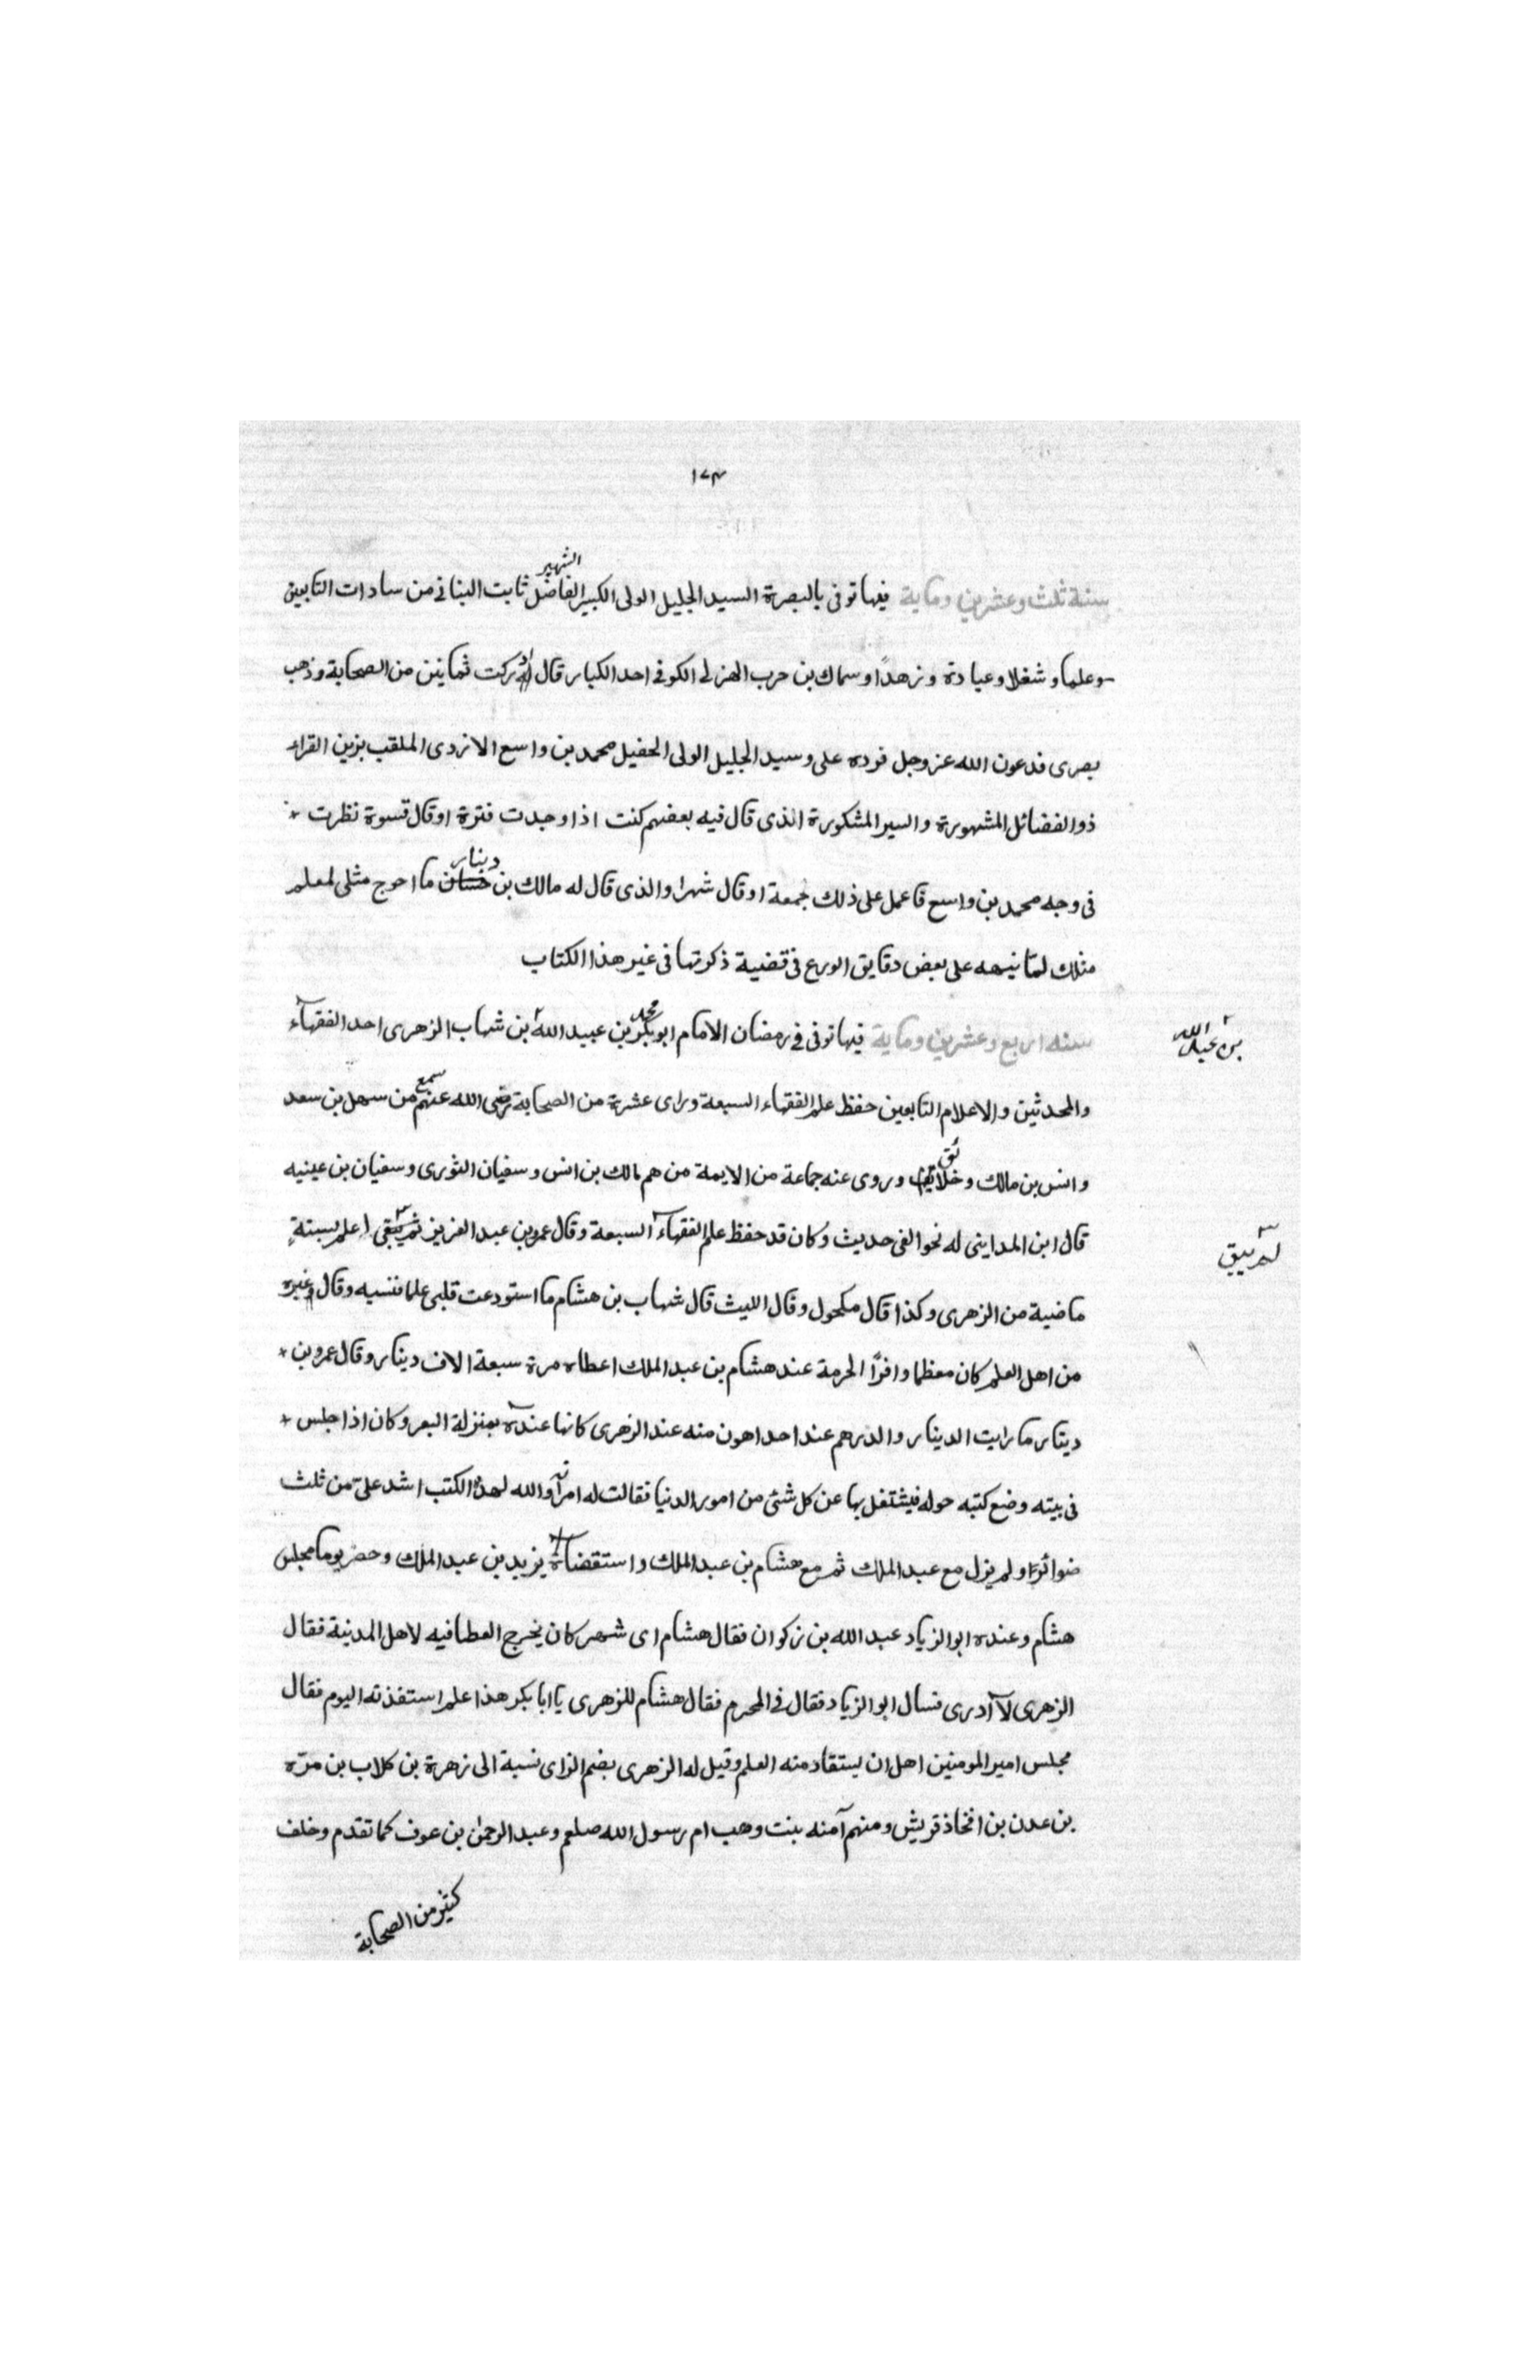 ١٧٣
سنة ثلث وعشرين وماية فيها توفى بالبصرة السيد الجليل الولى الكبير الفاضل الشهير ثابت البنانى من سادات التابعين
وعلما وشغلا وعبادة وزهدا وسماك بن حرب الهزلى الكوفى احد الكبار قال ادركت ثمانين من الصحابة وذهب
بصرى فدعون الله عز وجل فرده على وسيد الجليل الولى الحفيل محمد بن واسع الازدى الملقب بزين القراء
ذو الفضائل المشهورة والسير المشكورة الذى قال فيه بعضهم كنت اذا وجدت فترة او قال قسوة نظرت
فى وجه محمد بن واسع فاعمل على ذلك جمعة او قال شهرا والذى قال له مالك بن دينار ما احوج مثلى لمعلم
مثلك لما نبهه على بعض دقايق الورع فى قضية ذكرتها فى غير هذا الكتاب
سنه اربع وعشرين وماية فيها توفى فى رمضان الامام ابو بكر محمد بن عبيد الله بن شهاب الزهرى احد الفقهاء
بن عبد الله
والمحدثين والاعلام التابعين حفظ علم الفقهاء السبعة وراى عشرة من الصحابة رضى الله عنهم سمع من سهل بن سعد
وانس بن مالك وخلائق وروى عنه جماعة من الايمة من هم مالك بن انس وسفيان الثورى وسفيان بن عينيه
قال ابن المداينى له نحو الفى حديث وكان قد حفظ علم الفقهاء السبعة وقال عمرو بن عبد العزيز ثم يبقى اعلم بسنةٍ
لم يبق
ماضية من الزهرى وكذا قال مكحول وقال الليث قال شهاب بن هشام ما استودعت قلبى علما فنسيه وقال غيره
من اهل العلم كان معظما وافرًا الحرمة عند هشام بن عبد الملك اعطاه مرة سبعة الاف دينار وقال عمرو بن
دينار ما رايت الدينار والدرهم عند احد اهون منه عند الزهرى كانها عنده بمنزلة البعر وكان اذا جلس
فى بيته وضع كتبه حوله فيشتغل بها عن كل شئ من امور الدنيا فقالت له امراته والله لهذا الكتب اشد على من ثلث
ضوائر ولم يزل مع عبد الملك ثم مع هشام بن عبد الملك واستقضاه يزيد بن عبد الملك وحضر يوما مجلس
هشام وعنده ابو الزياد عبد الله بن زكوان فقال هشام اى شهر كان يخرج العطا فيه لاهل المدينة فقال
الزهرى لا أدرى فسال ابو الزياد فقال فى المحرم فقال هشام للزهرى يا ابا بكر هذا علم استفذته اليوم فقال
مجلس امير المومنين اهل ان يستقاد منه العلم وقيل له الزهرى بضم الزاى نسبة الى زهرة بن كلاب بن مرّه
بن عدن بن افخاذ قريش ومنهم آمنه بنت وهب ام رسول الله صلعم وعبد الرحمن بن عوف كما تقدم وخلف
كثير من الصحابة